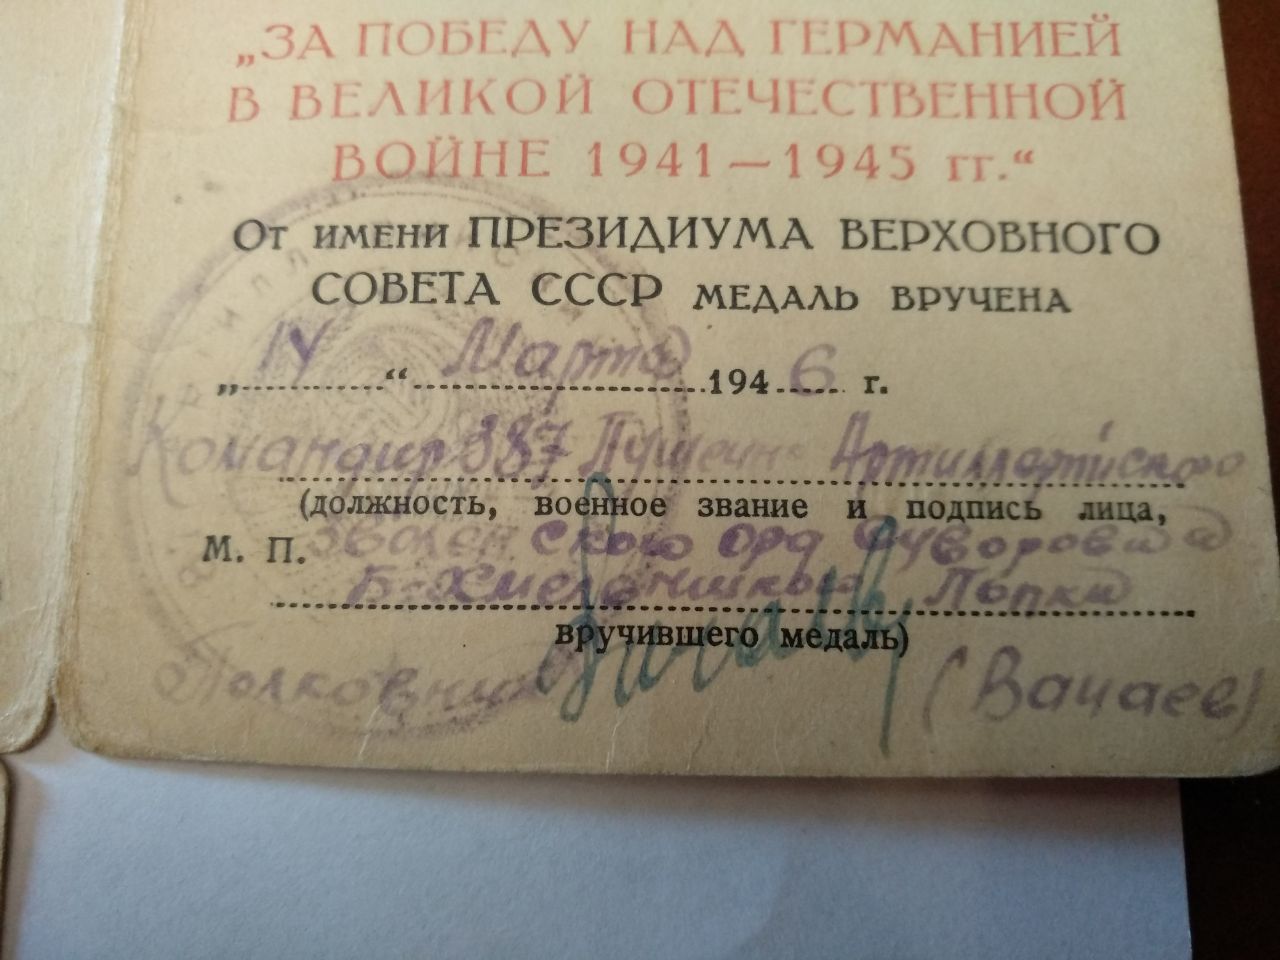 „ЗА ПОБЕДУ НАД ГЕРМАНИЕЙ
В ВЕЛИКОЙ ОТЕЧЕСТВЕННОЙ
ВОЙНЕ 1941—1945 гг.“
От имени ПРЕЗИДИУМА ВЕРХОВНОГО
СОВЕТА СССР медаль вручена
„IV“ Марта 1946 г.
Командир 387 Пушечно Артиллерийского
(должность, военное звание и подпись лица,
М. П. ского орд Суворова
Б-Хмельницкого Полка
вручившего медаль)
Полковник (Вачаев)